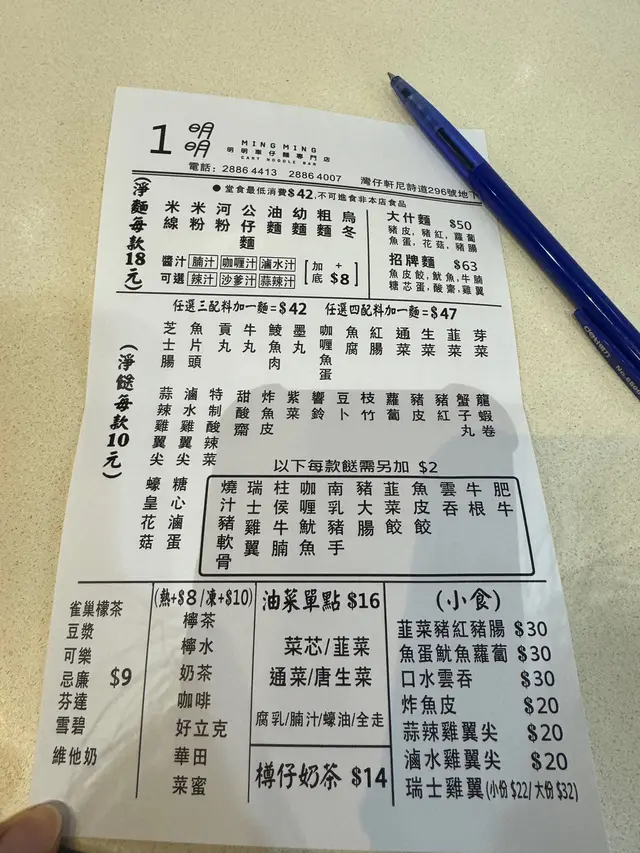 1 明明
MING MING
明明車仔麵專門店
CART NOODLE BAR
電話：2886 4413 2886 4007
灣仔軒尼詩道296號地下
● 堂食最低消費$42,不可進食非本店食品
(淨麵每款18元)
米線 米粉 河粉 公仔麵 油麵 幼麵 粗麵 烏冬
醬汁可選
腩汁 咖喱汁 滷水汁
辣汁 沙爹汁 蒜辣汁
[加底 + $8]
大什麵 $50
豬皮,豬紅,蘿蔔
魚蛋,花菇,豬腸
招牌麵 $63
魚皮餃,魷魚,牛腩
糖芯蛋,酸齋,雞翼
任選三配料加一麵=$42 任選四配料加一麵=$47
(淨餸每款10元)
芝士腸 魚片頭 貢丸 牛丸 鯪魚肉 墨丸 咖喱魚蛋 魚腐 紅腸 通菜 生菜 韮菜 芽菜
蒜辣雞翼尖 滷水雞翼尖 特制酸辣菜 甜酸齋 炸魚皮 紫菜 響鈴 豆卜 枝竹 蘿蔔 豬皮 豬紅 蟹子丸 龍蝦卷
蠔皇花菇 糖心滷蛋
以下每款餸需另加 $2
燒汁豬軟骨 瑞士雞翼 柱侯牛腩 咖喱魷魚 南乳豬手 豬大腸 韮菜餃 魚皮餃 雲吞 牛根 肥牛
雀巢檬茶
豆漿
可樂
忌廉 $9
芬達
雪碧
維他奶
(熱+$8/凍+$10)
檸茶
檸水
奶茶
咖啡
好立克
華田
菜蜜
油菜單點 $16
菜芯/韮菜
通菜/唐生菜
腐乳/腩汁/蠔油/全走
樽仔奶茶 $14
(小食)
韮菜豬紅豬腸 $30
魚蛋魷魚蘿蔔 $30
口水雲吞 $30
炸魚皮 $20
蒜辣雞翼尖 $20
滷水雞翼尖 $20
瑞士雞翼(小份$22/大份$32)